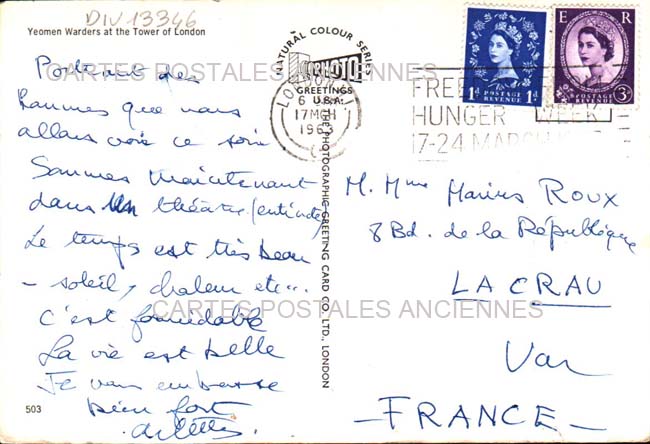 DIV 13346
Yeomen Warders at the Tower of London
que nous
allons voir ce soir
Sommes maintenant
dans un théâtre
Le temps est très beau
- soleil, chaleur etc...
C'est formidable
La vie est belle
Je vous embrasse
bien fort
503
NATURAL COLOUR SERIES
PHOTO
GREETINGS
THE PHOTOGRAPHIC GREETING CARD CO., LTD., LONDON
LONDON
6
17 MCH
1963
FREEDOM
HUNGER WEEK
17-24 MARCH
POSTAGE
REVENUE
1d 1d
E R
POSTAGE
3d
M. Mme Marius Roux
8 Bd. de la République
LA CRAU
Var
- FRANCE -
CARTES POSTALES ANCIENNES
CARTES POSTALES ANCIENNES